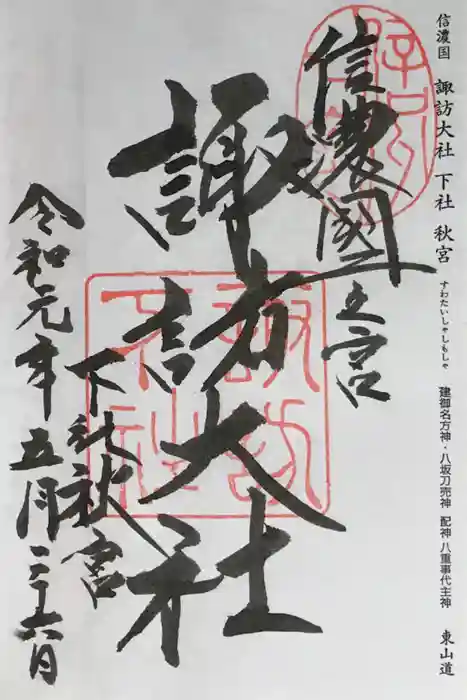 信濃国 諏訪大社 下社 秋宮 すわたいしゃしもしゃ 建御名方神・八坂刀売神 配神 八重事代主神 東山道
信濃國一之宮
諏訪大社
下社秋宮
令和元年五月二十六日
諏訪
下社